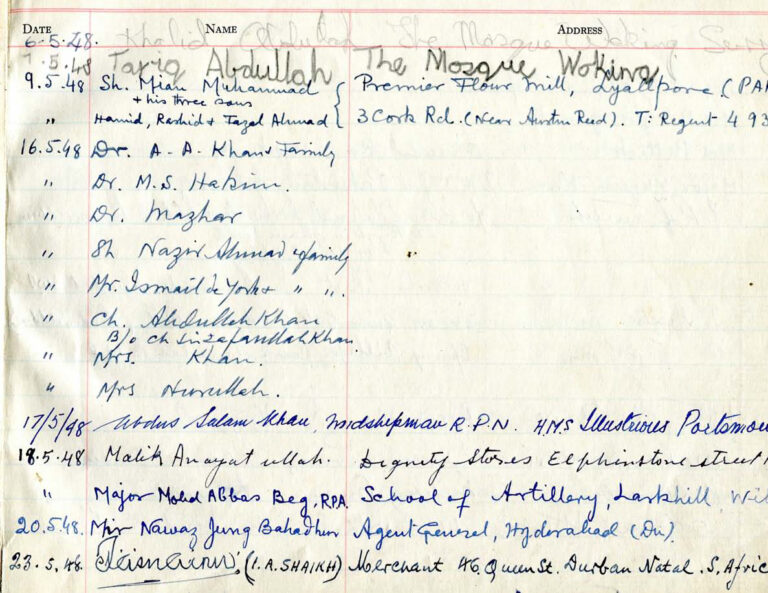 DATE NAME ADDRESS
6.5.48. Khalid Abdullah The Mosque Woking
7.5.48 Tariq Abdullah The Mosque Woking
9.5.48 Sh. Mian Muhammad { Premier Flour Mill, Lyallpore (PA
+ his three sons
" Hamid, Rashid & Fazal Ahmad 3 Cork Rd. (Near Austin Reed). T: Regent 4 93
16.5.48 Dr. A. A. Khan & Family
" Dr. M.S. Hakim.
" Dr. Mazhar
" Sh Nazir Ahmad & family
" Mr. Ismail de Yorke " ".
" Ch. Abdullah Khan
B/o Ch Sir Zafarullah Khan
" Mrs. Khan.
" Mrs Nurullah.
17/5/48 Abdus Salam Khan, Midshipman R.P.N. H.M.S Illustrious Portsmou
18.5.48 Malik Anayat ullah. Dignity Stores Elphinstone street
" Major Mohd Abbas Beg, RPA. School of Artillery, Larkhill, Wil
20.5.48. Mir Nawaz Jung Bahadhur Agent General, Hyderabad (Dn).
23.5.48. (I.A. SHAIKH) Merchant 46. Queen St. Durban Natal. S. Afric